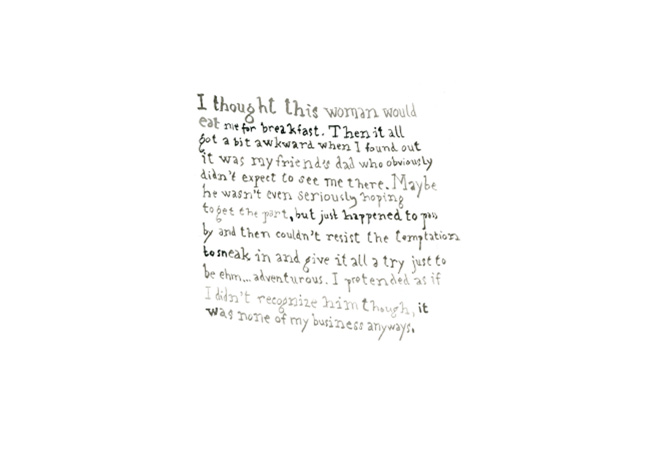 I thought this woman would
eat me for breakfast. Then it all
got a bit awkward when I found out
it was my friends dad who obviously
didn't expect to see me there. Maybe
he wasn't even seriously hoping
to get the part, but just happened to pass
by and then couldn't resist the temptation
to sneak in and give it all a try just to
be ehm... adventurous. I pretended as if
I didn't recognize him though, it
was none of my business anyways.